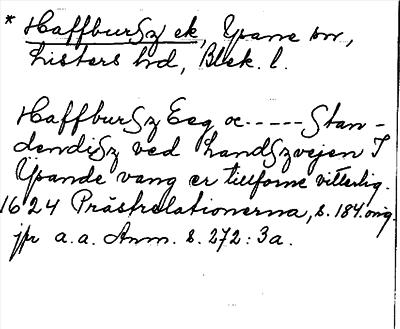 * Haffburßz ek, Ysane sn,
Listers hd, Blek. l.
Haffburßz Eeg oc ----- Stan-
dendißz ved Landßzvejen I
Ysande vang er tillforne vitterlig.
1624 Prästrelationerna, s. 184 orig.
jfr a.a. Anm. s. 272:3a.